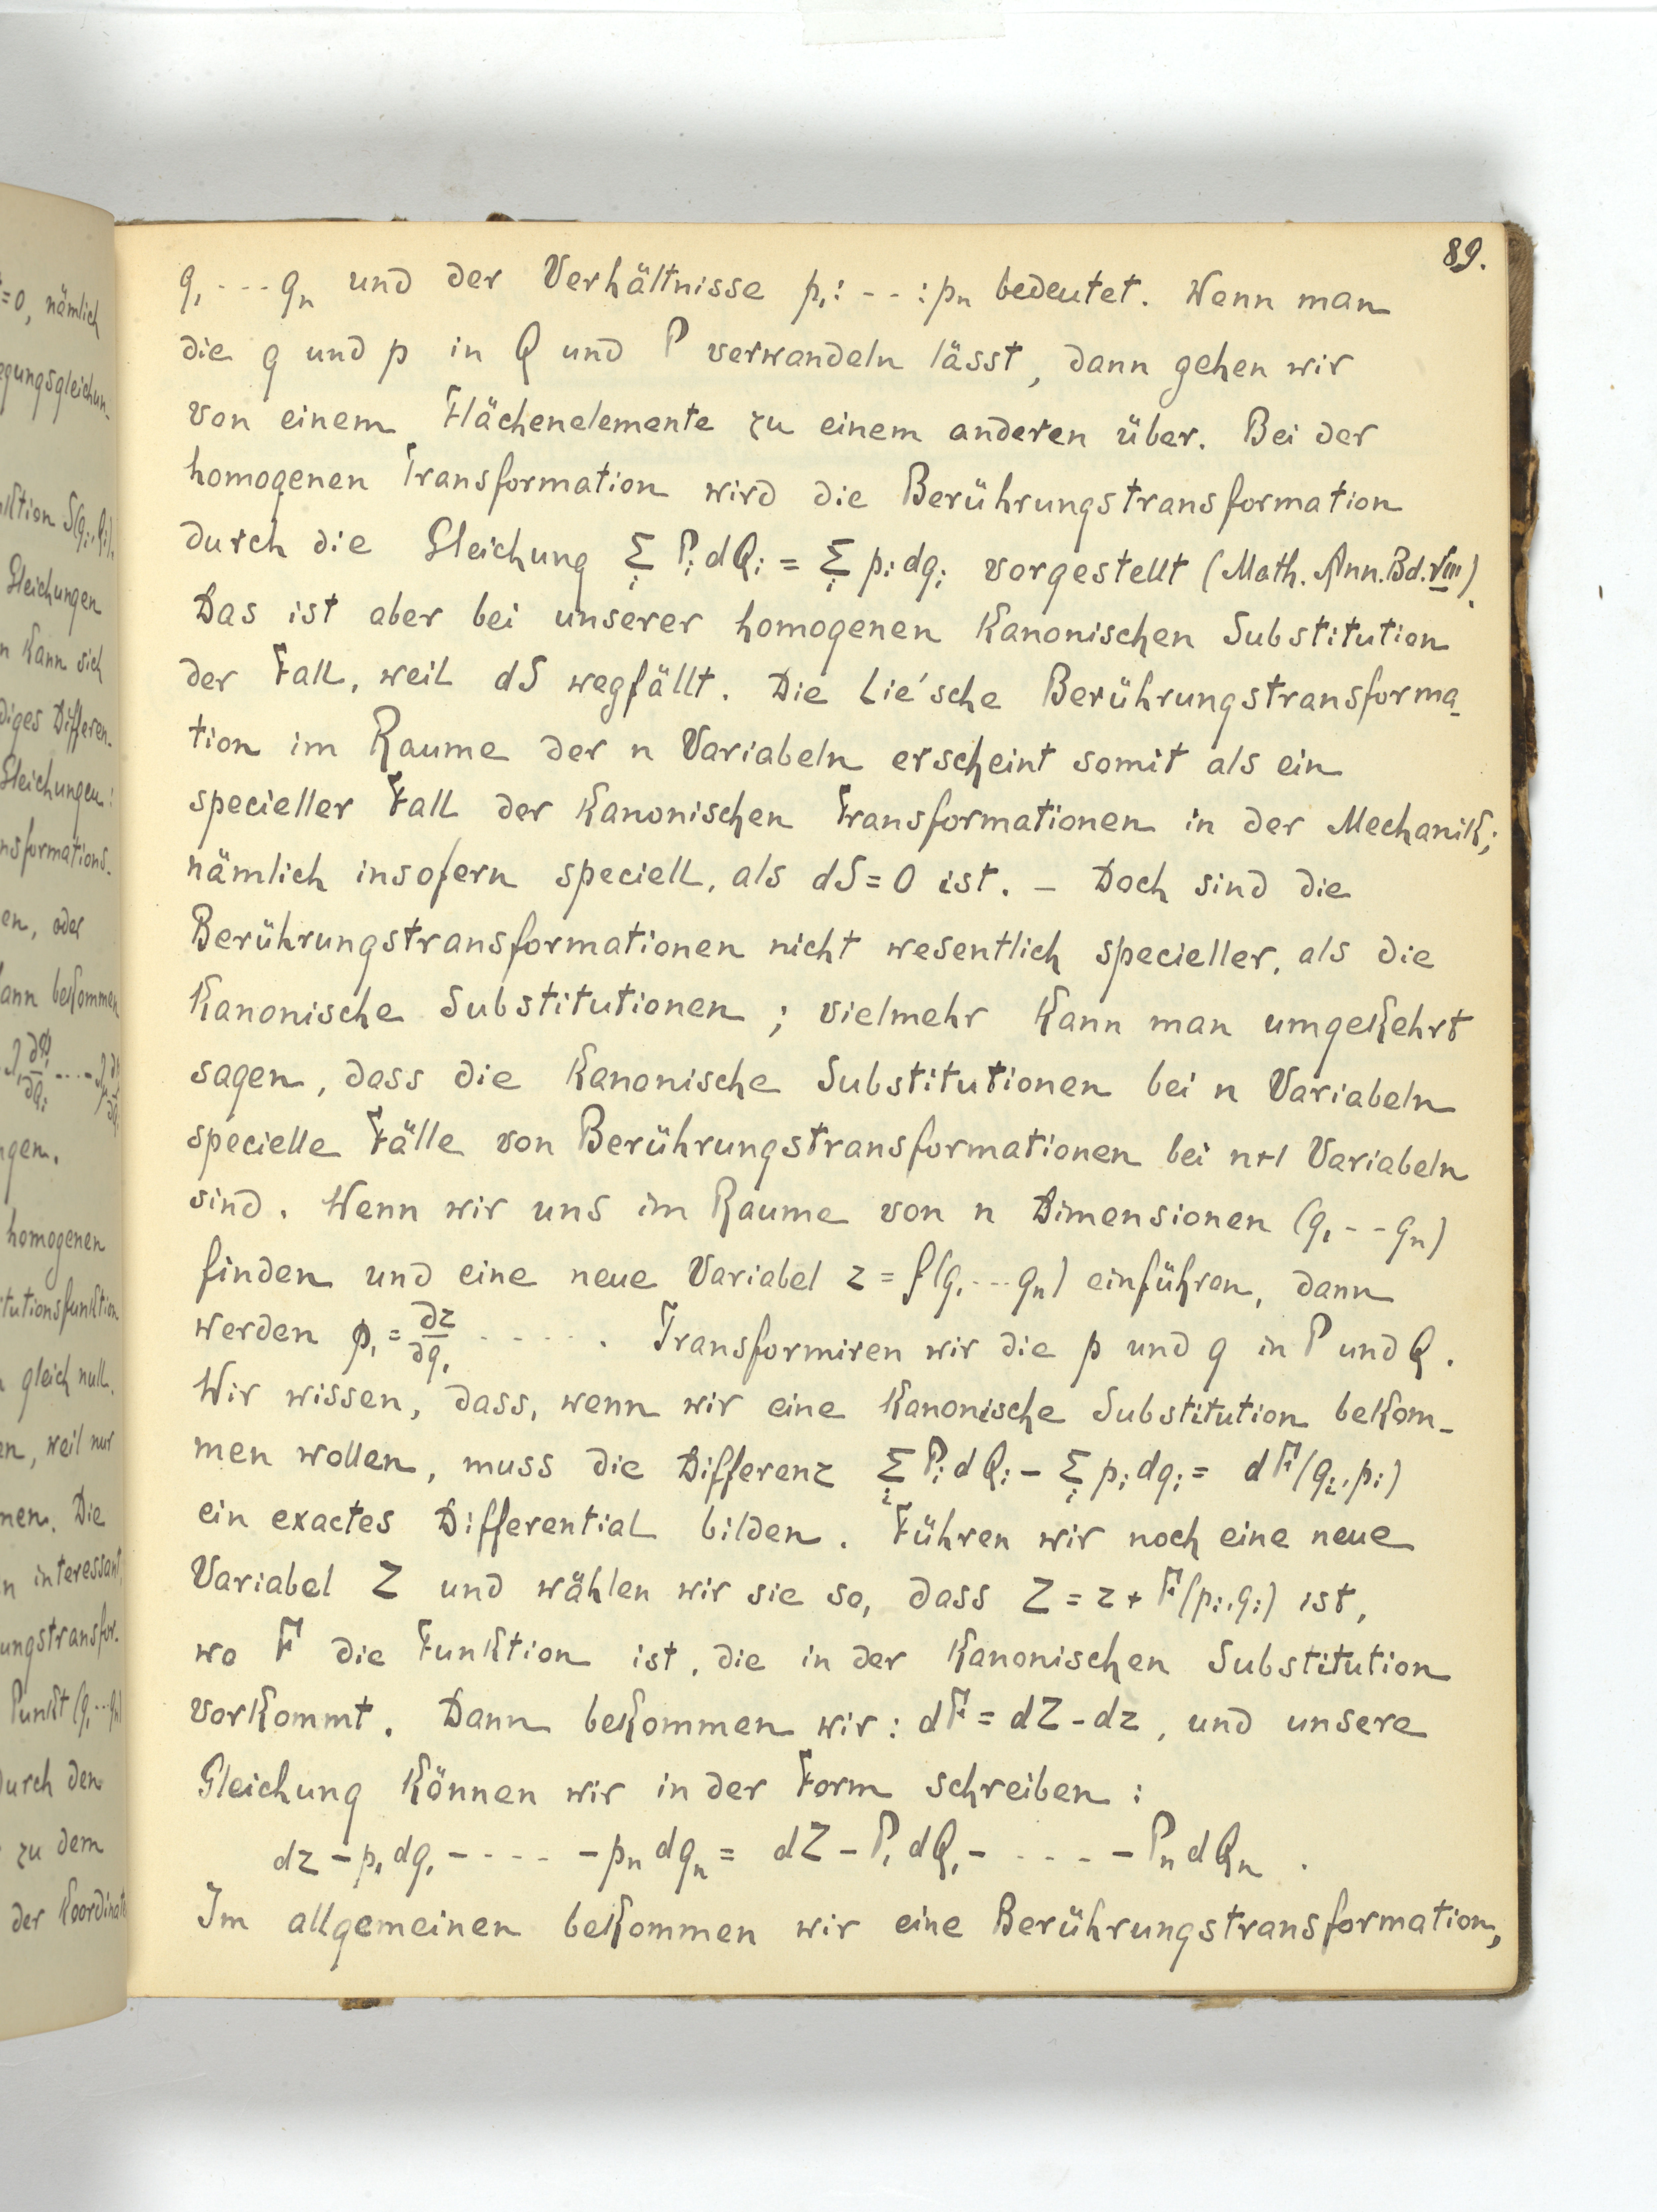 =0, nämlich
egungsgleichun-
ktion S(qi, Qi),
Gleichungen
n kann sich
diges Differen-
Gleichungen:
nsformations-
en, oder
ann bekommen
ngen.
homogenen
itutionsfunktion
gleich null.
en, weil nur
nen. Die
n interessant,
ungstransfor-
Punkt (q₁ --- qn)
durch den
zu dem
der Koordinate
89.
q₁ --- qn und der Verhältnisse p₁: -- : pn bedeutet. Wenn man
die q und p in Q und P verwandeln lässt, dann gehen wir
von einem Flächenelemente zu einem anderen über. Bei der
homogenen Transformation wird die Berührungstransformation
durch die Gleichung Σᵢ Pᵢ dQᵢ = Σᵢ pᵢ dqᵢ vorgestellt (Math. Ann. Bd. VIII).
Das ist aber bei unserer homogenen kanonischen Substitution
der Fall, weil dS wegfällt. Die Lie'sche Berührungstransforma-
tion im Raume der n Variabeln erscheint somit als ein
specieller Fall der kanonischen Transformationen in der Mechanik;
nämlich insofern speciell, als dS = 0 ist. – Doch sind die
Berührungstransformationen nicht wesentlich specieller, als die
kanonische Substitutionen ; vielmehr kann man umgekehrt
sagen, dass die kanonische Substitutionen bei n Variabeln
specielle Fälle von Berührungstransformationen bei n+1 Variabeln
sind. Wenn wir uns im Raume von n Dimensionen (q₁ -- qn)
finden und eine neue Variabel z = f(q₁ --- qn) einführen, dann
werden p₁ = ∂z/∂q₁ ------ . Transformiren wir die p und q in P und Q.
Wir wissen, dass, wenn wir eine kanonische Substitution bekom-
men wollen, muss die Differenz Σᵢ Pᵢ dQᵢ – Σᵢ pᵢ dqᵢ = dF(qᵢ, pᵢ)
ein exactes Differential bilden. Führen wir noch eine neue
Variabel Z und wählen wir sie so, dass Z = z + F(pᵢ, qᵢ) ist,
wo F die Funktion ist, die in der kanonischen Substitution
vorkommt. Dann bekommen wir: dF = dZ - dz, und unsere
Gleichung können wir in der Form schreiben :
dz – p₁ dq₁ - ---- – pn dqn = dZ – P₁ dQ₁ - ---- – Pn dQn .
Im allgemeinen bekommen wir eine Berührungstransformation,